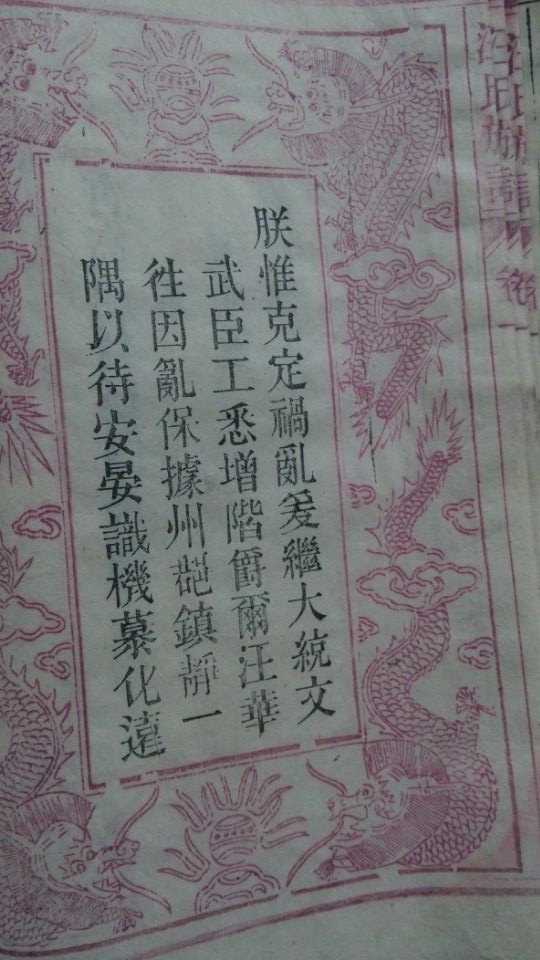 朕惟克定禍亂爰繼大統文
武臣工悉增階爵爾汪華
徃因亂保據州邑鎮靜一
隅以待安晏識機慕化遠
卷一